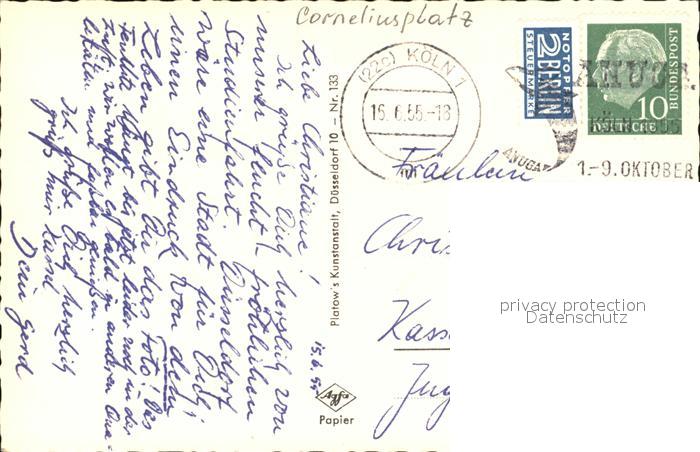 Corneliusplatz
Liebe Christiane!
Ich grüße Dich herzlich von
unserer feucht-fröhlichen
Studienfahrt. Düsseldorf
wäre eine Stadt für Dich;
einen Eindruck von dem
Leben gibt Dir das Foto! Das
hängt bis jetzt leider noch in der
wir wollen es bald in anderen Qua-
litäten und genießen.
Ich grüße Dich herzlich
grüß mir Kassel
Dein Gerd
15.6.55
Platow's Kunstanstalt, Düsseldorf 10 – Nr. 133
Agfa
Papier
(22c) KÖLN 1
15.6.55.-18
NOTOPFER
2 BERLIN
STEUERMARKE
DEUTSCHE
BUNDESPOST
10
ANUGA
KÖLN 1955
ANUGA
1.-9.OKTOBER
Fräulein
Chris
Kass
Jug
privacy protection
Datenschutz